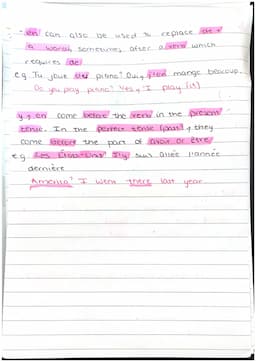 - en can also be used to replace de +
a word, sometimes after a verb which
requires de
eg Tu joue du piano? Oui, j'en mange beacoup.
Do you play piano? Yes, I play (it)
y + en come before the verb in the present
tense. In the perfect tense (past), they
come before the part of avoir or être
eg Les États-Unis? J'y suis allée l'année
dernière
America? I went there last year